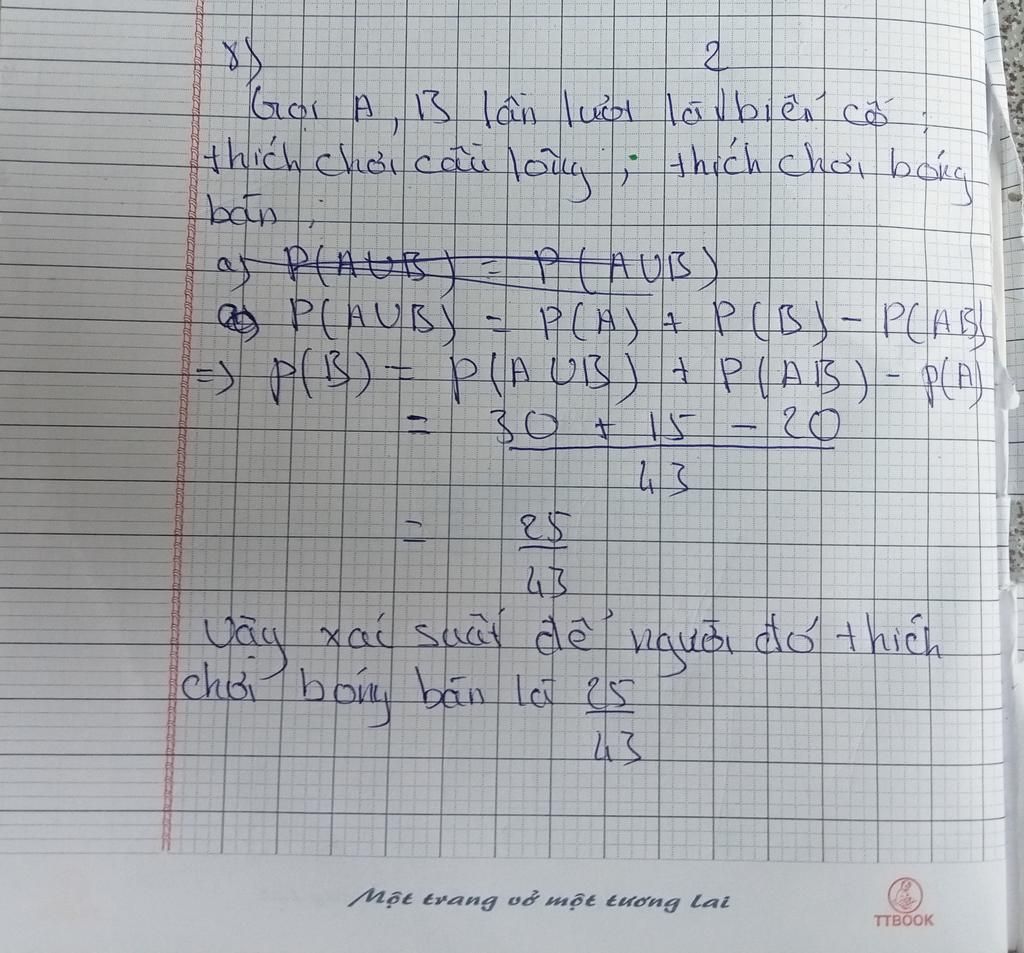 8) 2
Gọi A, B lần lượt là biến cố :
thích chơi cầu lông ; thích chơi bóng
bàn ;
a) P(A∪B) = P(A∪B)
a) P(A∪B) = P(A) + P(B) - P(AB)
=> P(B) = P(A∪B) + P(AB) - P(A)
= 30 + 15 - 20
43
= 25
43
Vậy xác suất để người đó thích
chơi bóng bàn là 25
43
Một trang vở một tương lai
TTBOOK